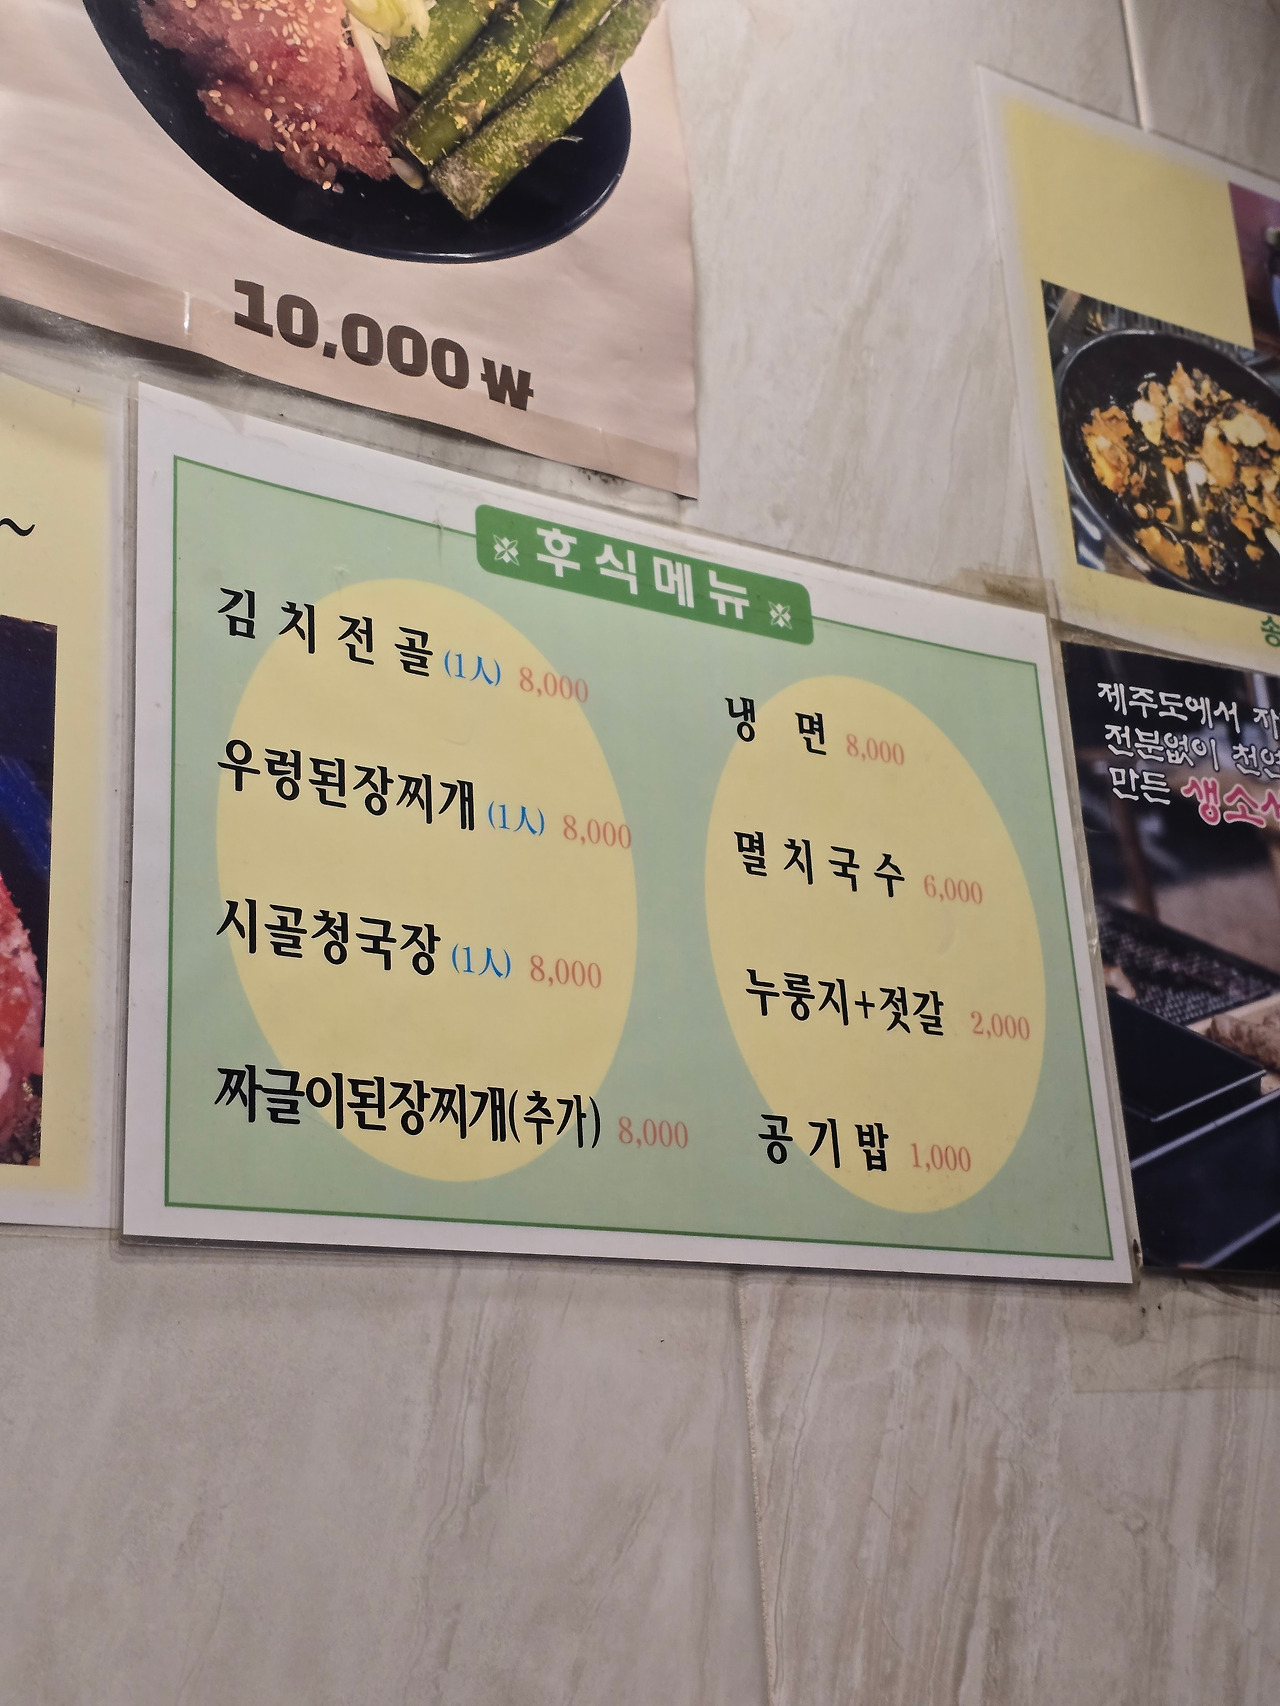 10,000 ₩
~
후식메뉴
김치전골 (1人) 8,000
우렁된장찌개 (1人) 8,000
시골청국장 (1人) 8,000
짜글이된장찌개(추가) 8,000
냉면 8,000
멸치국수 6,000
누룽지+젓갈 2,000
공기밥 1,000
송
제주도에서
전분없이
만든